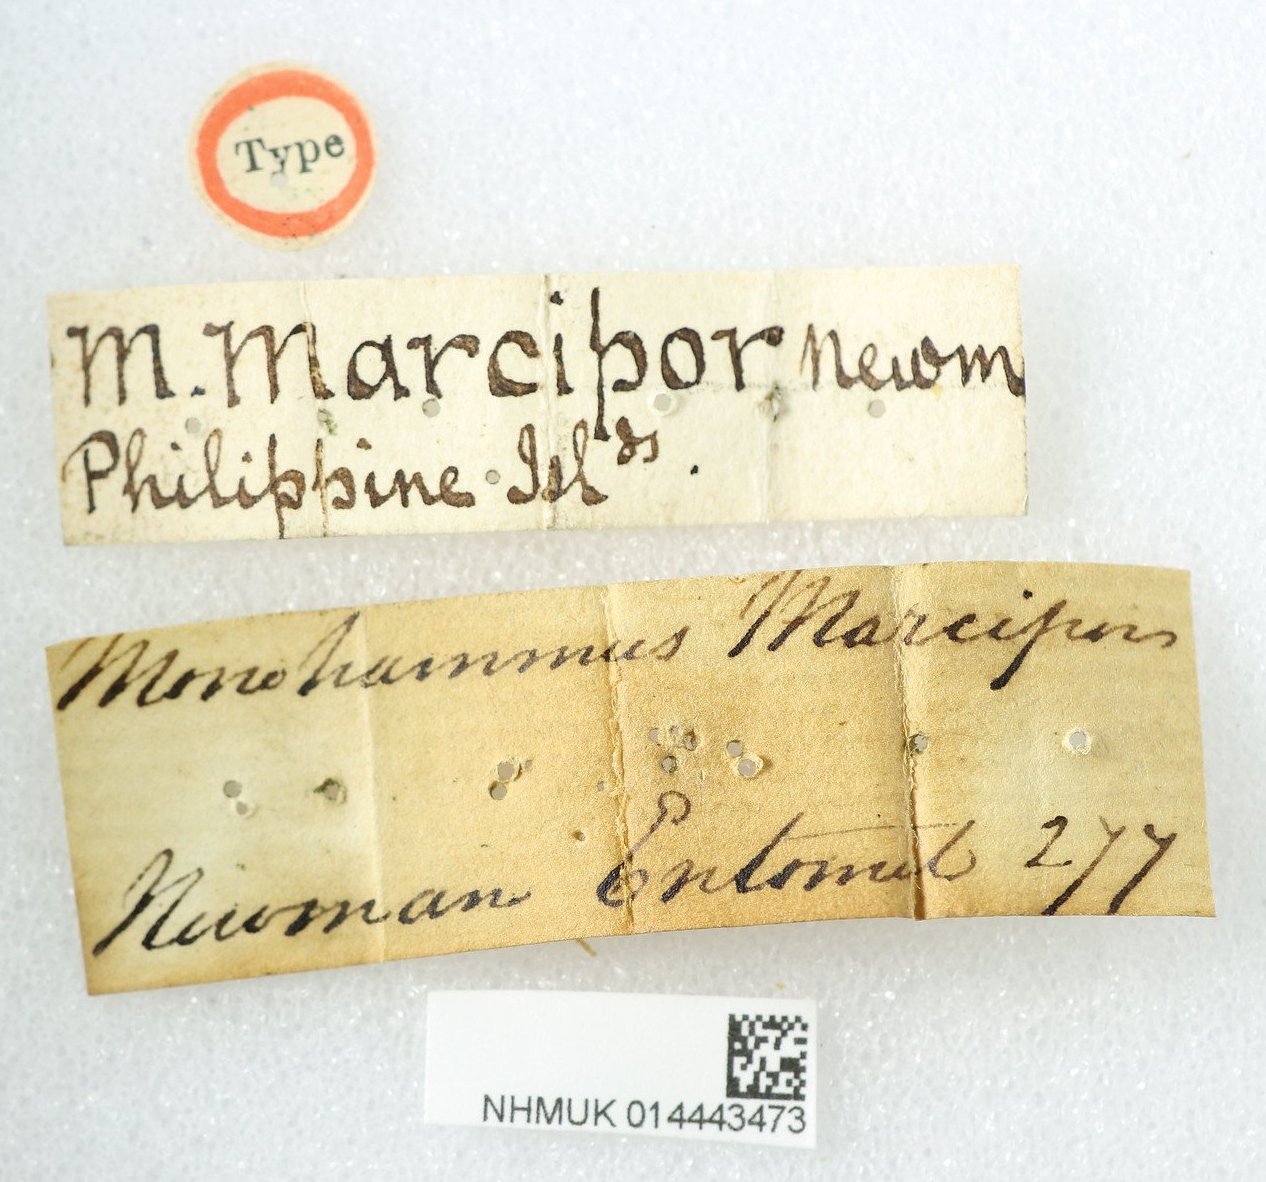 Type
M. Marcipor Newm
Philippine Islds.
Monohammus Marcipor
Newman Entomol 277
NHMUK 014443473